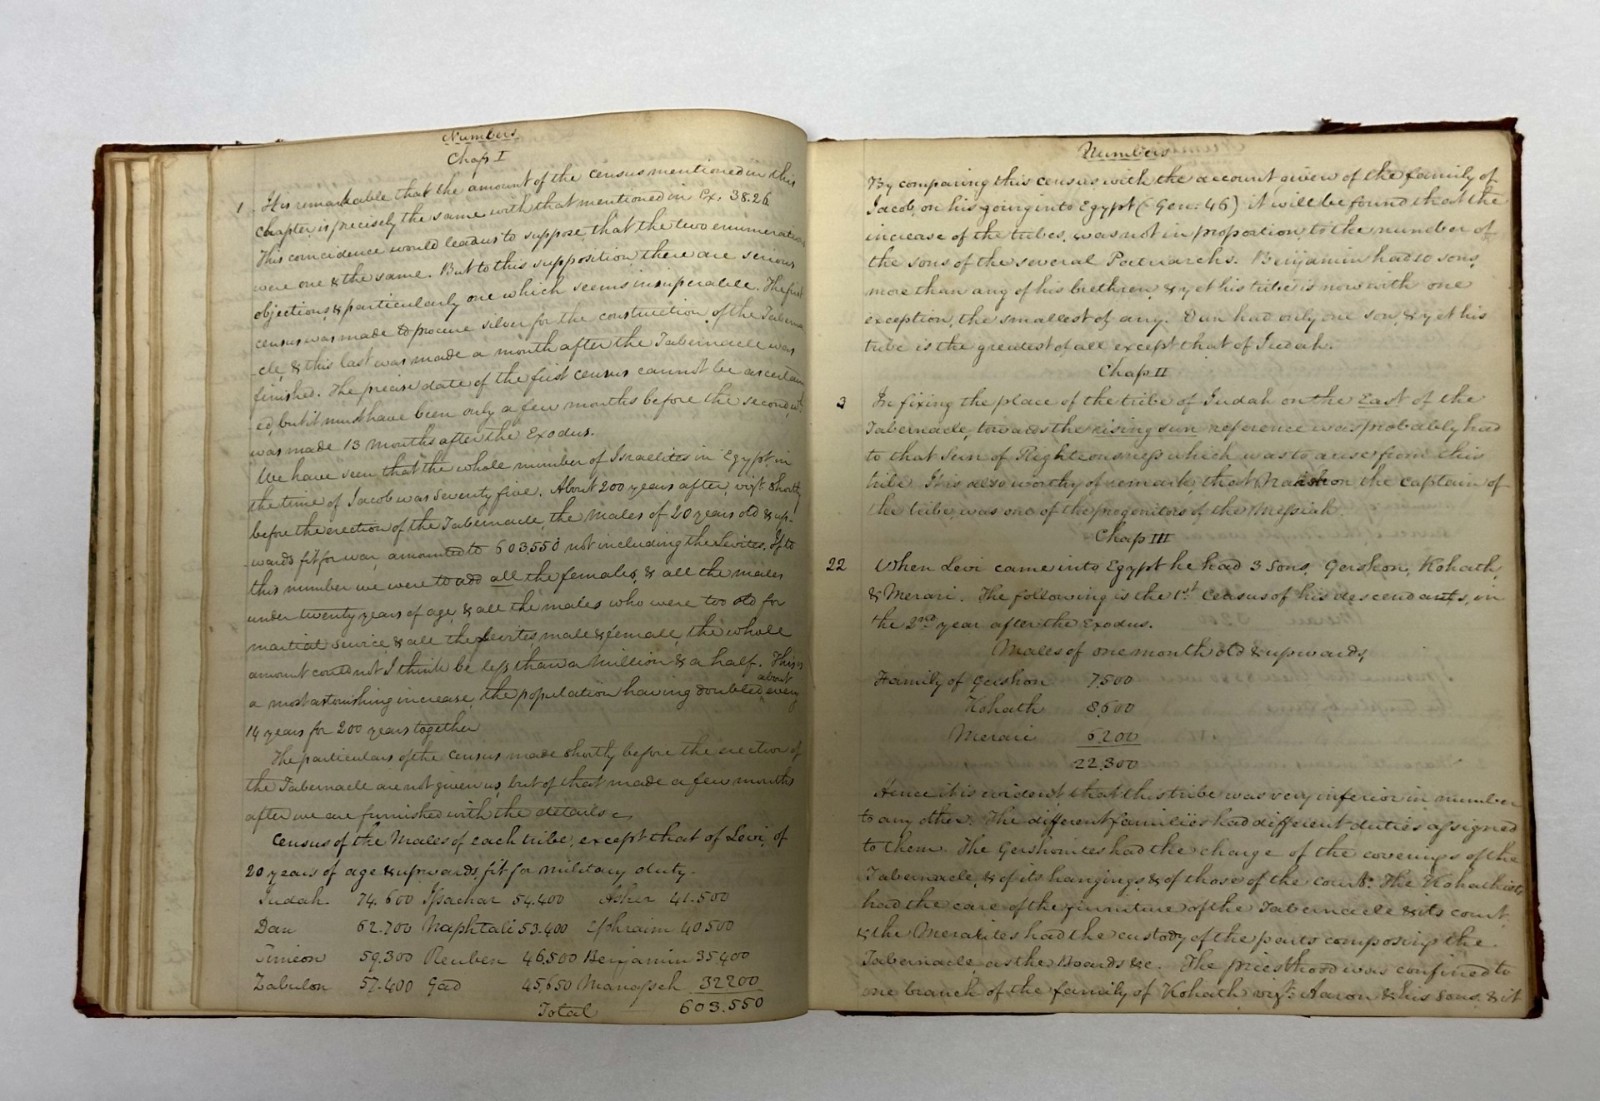 Numbers
Chap I
1 It is remarkable that the amount of the census mentioned in this
chapter, is precisely the same with that mentioned in Ex. 38.26
This coincidence would lead us to suppose that the two enumerations
were one & the same. But to this supposition there are serious
objections, & particularly one which seems insuperable. The first
census was made to procure silver for the construction of the Taberna
-cle, & this last was made a month after the Tabernacle was
finished. The precise date of the first census cannot be ascertain
-ed, but it must have been only a few months before the second, wh.
was made 13 months after the Exodus.
We have seen that the whole number of Israelites in Egypt, in
the time of Jacob was Seventy five. About 200 years after, viz. shortly
before the erection of the Tabernacle, the males of 20 years old & up-
wards fit for war, amounted to 603,550 not including the Levites. If to
this number we were to add all the females, & all the males
under twenty years of age, & all the males who were too old for
martial service, & all the Levites, male & female, the whole
amount could not I think be less than a million & a half. This is
a most astonishing increase, the population having doubled about every
14 years for 200 years together
The particulars of the census made shortly before the erection of
the Tabernacle are not given us, but of that made a few months
after we are furnished with the details.
Census of the Males of each tribe, except that of Levi, of
20 years of age & upwards, fit for military duty.
Judah. 74.600 Issachar 54.400 Asher 41.500
Dan 62.700 Naphtali 53.400 Ephraim 40500
Simeon 59.300 Reuben 46,500 Benjamin 35400
Zabulon 57.400 Gad 45,650 Manasseh 32200
Total 603.550
Numbers
By comparing this census with the account given of the family of
Jacob, on his going into Egypt (Gen: 46) it will be found that the
increase of the tribes, was not in proportion, to the number of
the sons of the several Patriarchs. Benjamin had 10 sons,
more than any of his brethren, & yet his tribe is now with one
exception, the smallest of any. Dan had only one son, & yet his
tribe is the greatest of all except that of Judah.
Chap II
3 In fixing the place of the tribe of Judah on the East of the
Tabernacle, towards the rising sun reference was probably had
to that Sun of Righteousness which was to arise from this
tribe. It is also worthy of remark, that Naishon the captain of
the tribe, was one of the progenitors of the Messiah.
Chap III
22 When Levi came into Egypt he had 3 Sons, Gershon, Kohath,
& Merari. The following is the 1st Census of his descendants, in
the 2nd year after the Exodus.
Males of one month old & upwards,
Family of Gershon 7,500
Kohath 8,600
Merari 6200
22,300
Hence it is evident that this tribe was very inferior in number
to any other. The different families had different duties assigned
to them. The Gershonites had the charge of the coverings of the
Tabernacle, & of its hangings, & of those of the court. The Kohathites
had the care of the furniture of the Tabernacle & its court,
& the Merarites had the custody of the parts composing the
Tabernacle, as the Boards &c. The priesthood was confined to
one branch of the family of Kohath viz: Aaron & his Sons, & it